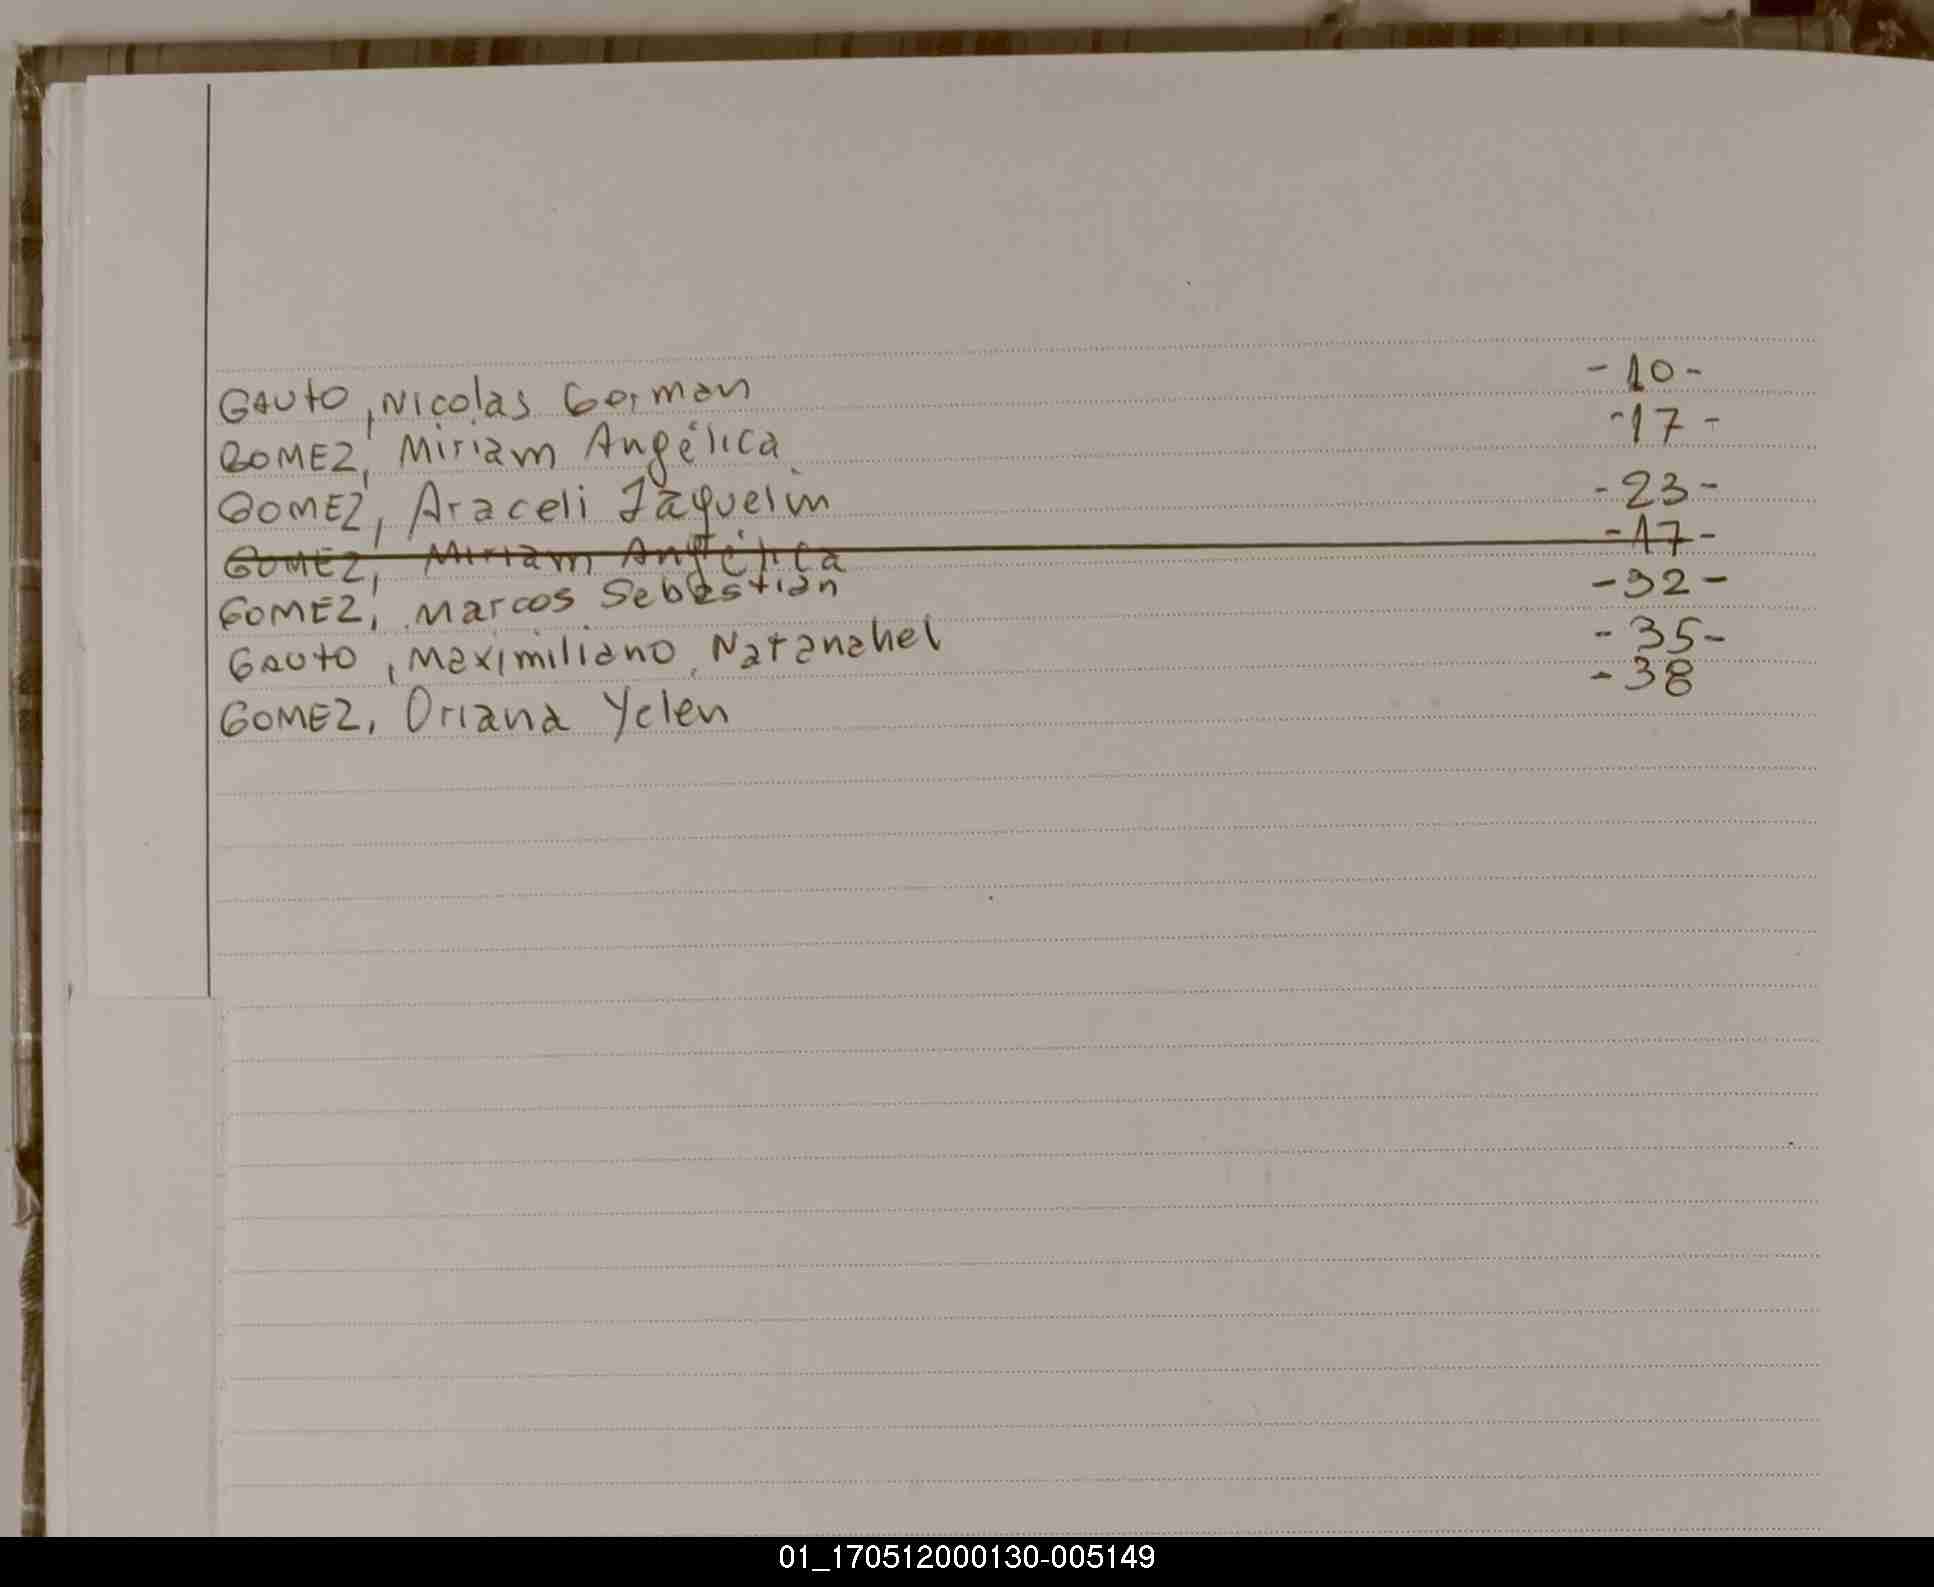 GAUTO, Nicolas German -10-
GOMEZ, Miriam Angélica -17-
GOMEZ, Araceli Jaquelin -23-
GOMEZ, Miriam Angélica -17-
GOMEZ, Marcos Sebastian -32-
GAUTO, Maximiliano Natanahel -35-
GOMEZ, Oriana Yelen -38
01_170512000130-005149